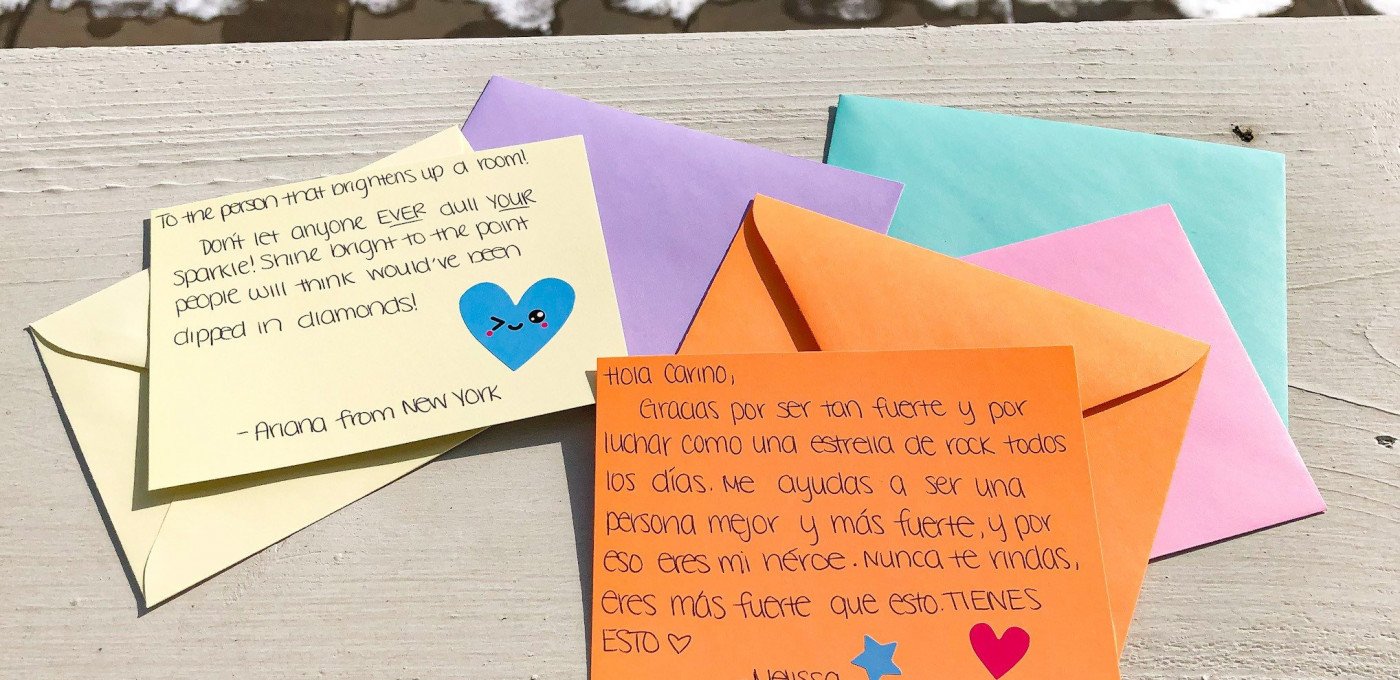 To the person that brightens up a room!
Don't let anyone EVER dull YOUR
sparkle! Shine bright to the point
people will think would've been
dipped in diamonds!
- Ariana from New York
Hola Carino,
Gracias por ser tan fuerte y por
luchar como una estrella de rock todos
los días. Me ayudas a ser una
persona mejor y más fuerte, y por
eso eres mi héroe. Nunca te rindas,
eres más fuerte que esto. TIENES
ESTO ♡